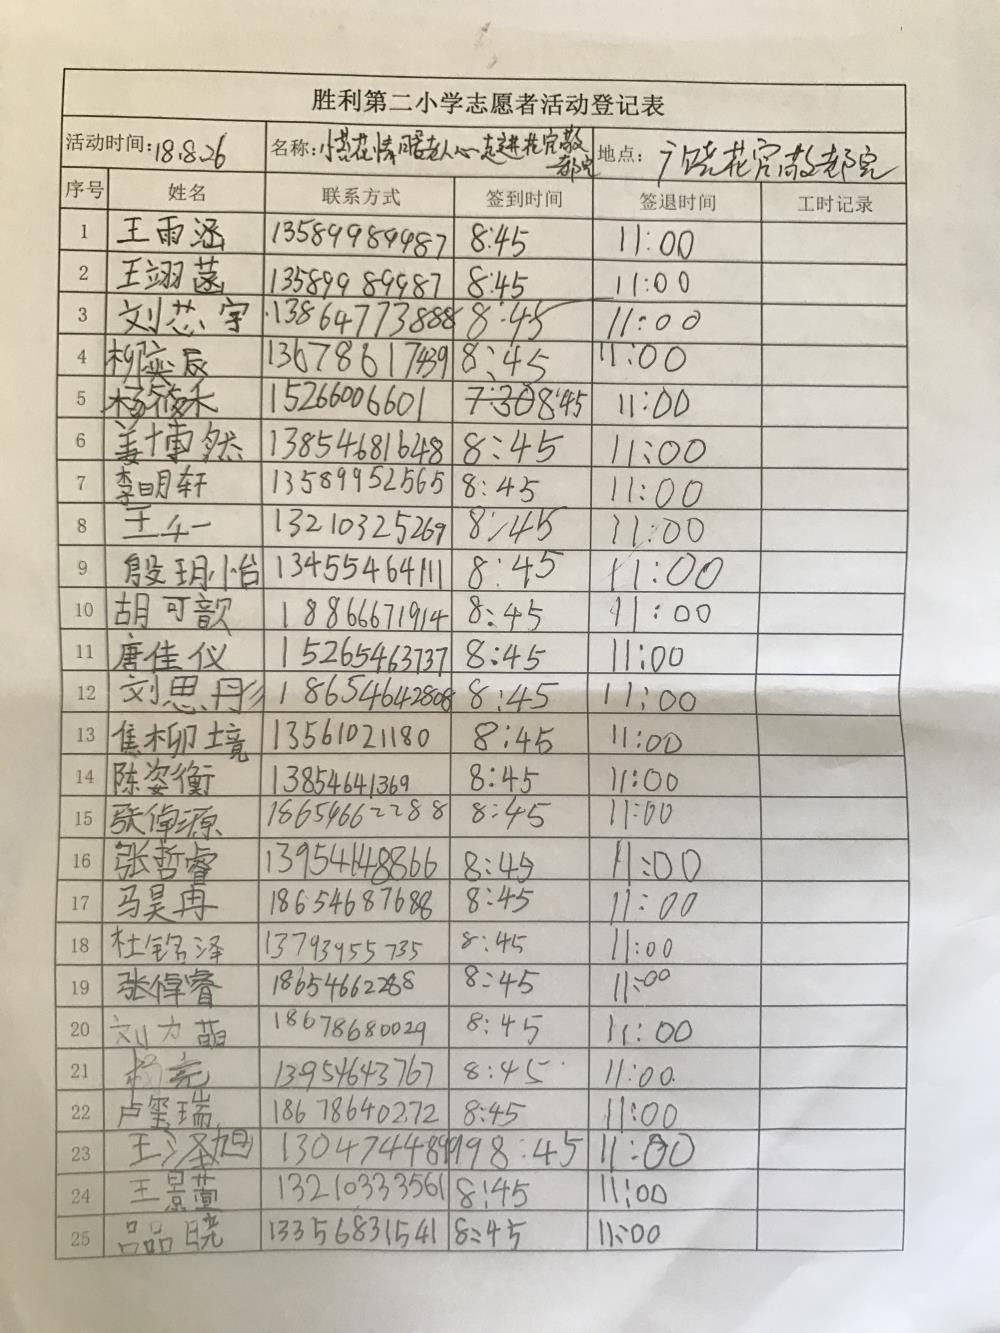 胜利第二小学志愿者活动登记表
活动时间: 18.8.26 名称: 惜花情 老人心 走进花官敬老院 地点: 广饶花官敬老院
序号 姓名 联系方式 签到时间 签退时间 工时记录
1 王雨涵 13589989987 8:45 11:00
2 王翊菡 13589989987 8:45 11:00
3 刘芯宇 13864773888 8:45 11:00
4 柳奕辰 13678617439 8:45 11:00
5 杨筱禾 15266006601 7:30 8:45 11:00
6 姜博然 13854681648 8:45 11:00
7 李明轩 13589952565 8:45 11:00
8 王 一 13210325269 8:45 11:00
9 殷玥怡 13455464111 8:45 11:00
10 胡可歆 18866671914 8:45 11:00
11 唐佳仪 15265463737 8:45 11:00
12 刘思彤 18654642808 8:45 11:00
13 焦柳境 13561021180 8:45 11:00
14 陈姿衡 13854641369 8:45 11:00
15 张倬源 18654662288 8:45 11:00
16 张哲睿 13954648866 8:45 11:00
17 马昊冉 18654687688 8:45 11:00
18 杜铭泽 13793955735 8:45 11:00
19 张倬睿 18654662288 8:45 11:00
20 刘力萌 18678680029 8:45 11:00
21 杨亮 13954643767 8:45 11:00
22 卢玺瑞 18678640272 8:45 11:00
23 王泽旭 13047448999 8:45 11:00
24 王景萱 13210333561 8:45 11:00
25 吕品晓 13356831541 8:45 11:00